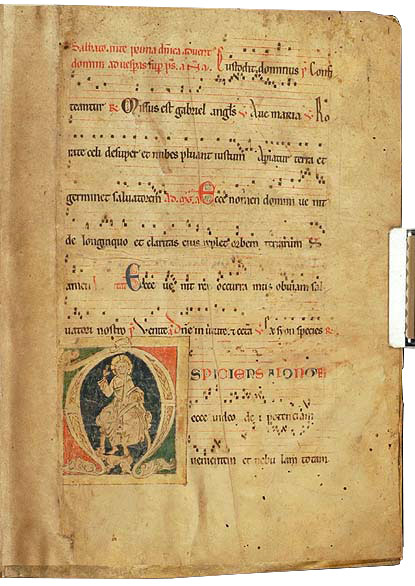 Sabbato ante prima dnica advent
domini ad vesperas sup ps. a Custodit dominus Confi
teantur Missus est gabriel angls Ave maria Ro
rate celi desuper et nubes pluant iustum Apiatur terra et
germinet salvatorem Ecce nomen domini ve nit
de longinquo et claritas eius replet orbem terrarum
Ecce ve nit rex occurra mus obviam sal
vatori nostro Venite Ex syon species
SPICIENS A LONGE
ecce video de i potentiam
venientem et nebu lam totam